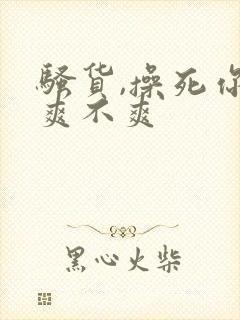 骚货,操死你
爽不爽
黑心火柴